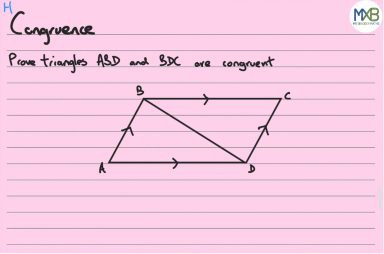 H
MXB
Congruence
Prove triangles ABD and BDC are congruent
B
C
A
D